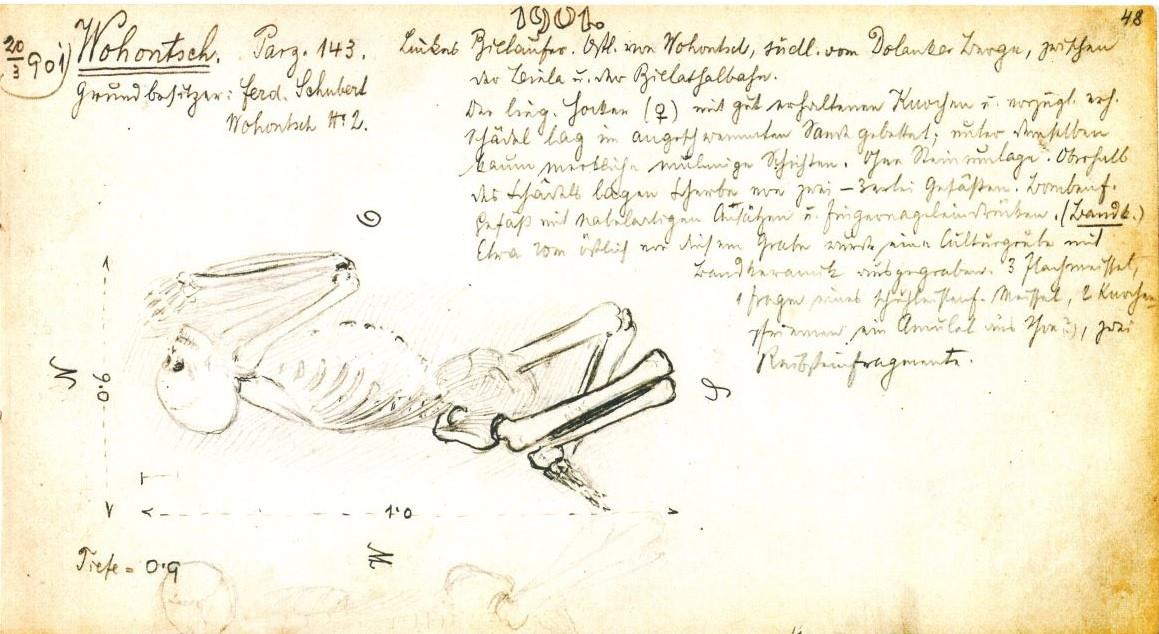 1901.
48
20/3 901) Wohontsch. Parz. 143.
Grundbesitzer: Ferd. Schubert
Wohontsch No 2.
Linkes Bielaufer. Östl. von Wohontsch, südl. vom Dolanker Berge, zwischen
der Biela u. der Bielathalbahn.
Der lieg. Hocker (♀) mit gut erhaltenen Knochen u. vorzügl. erh.
Schädel lag in angeschwemmten Sand gebettet; unter demselben
kaum merkliche mulmige Schichten. Ohne Steinumlage. Oberhalb
des Schädels lagen Scherbe von zwei – 3erlei Gefäßen. Bombenf.
Gefäß mit nabelartigen Ansätzen u. Fingernageleindrücken. (Bandk.)
Etwa östlich von diesem Grabe wurde eine Culturgrube mit
Bandkeramik ausgegraben. 3 Flachmeissel,
1 Fragm. eines schuhleistenf. Meissel, 2 Knochen-
pfriemen, ein Amulet aus Thon(?), zwei
Reibsteinfragmente.
O
N
0.6
S
1.0
W
Tiefe = 0.9